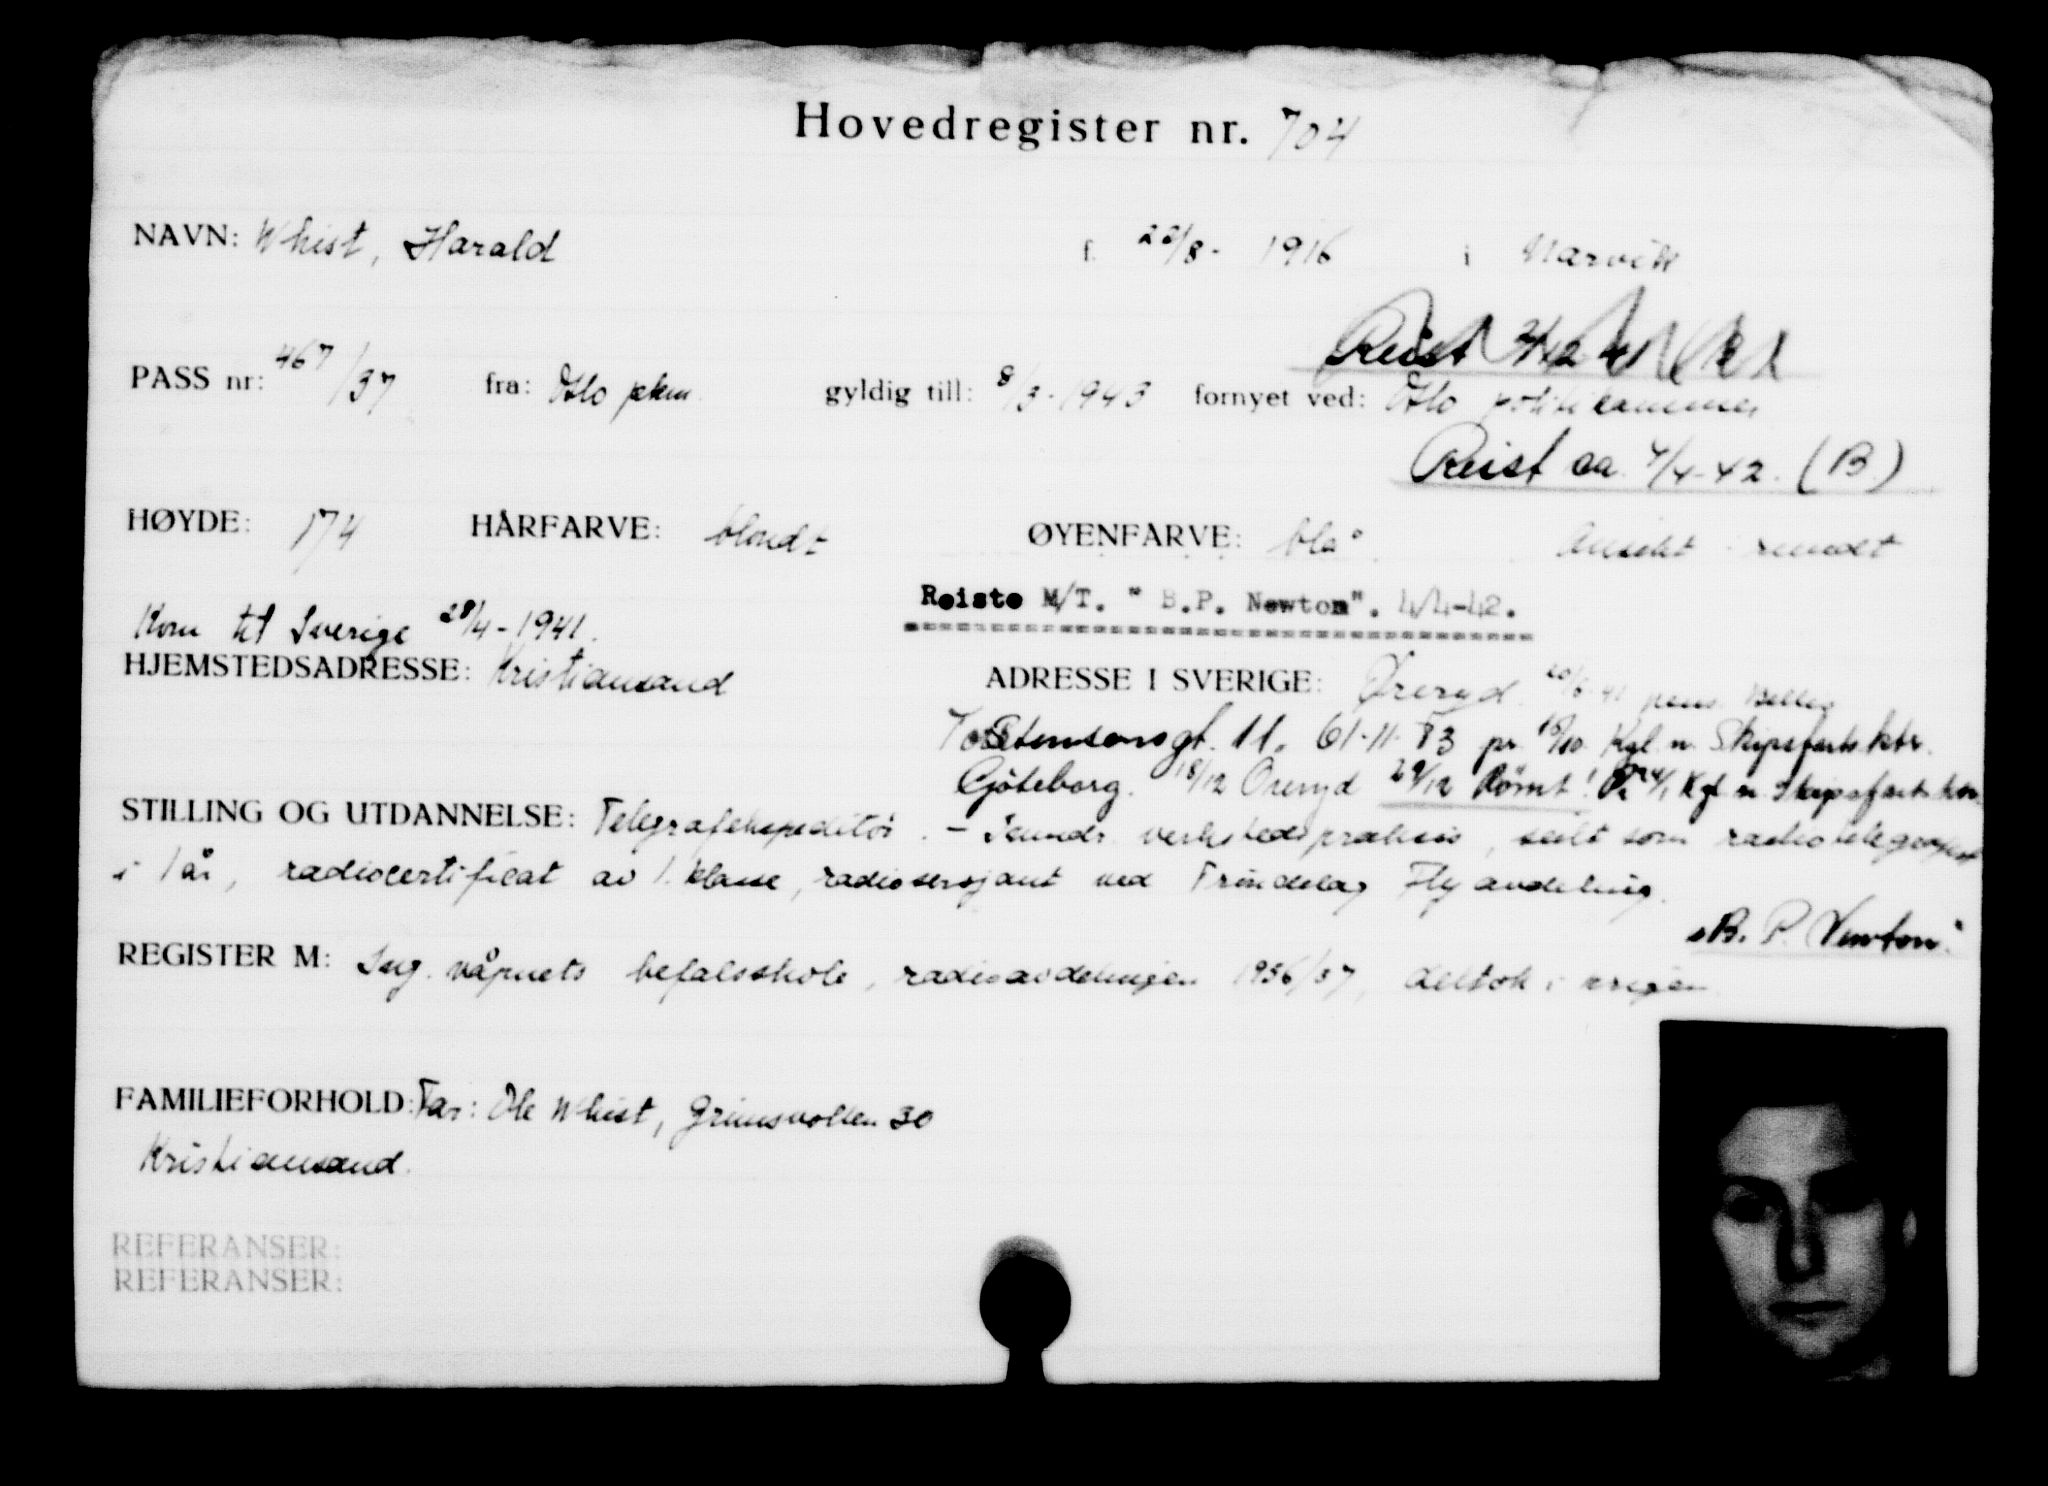 Hovedregister nr. 704
NAVN: Whist, Harald f. 22/8 - 1916 i Narvik
Reist
PASS nr: 467/37 fra: Oslo pkm. gyldig till: 8/3-1943 fornyet ved: Oslo politikammer
Reist aa. 4/4-42. (B)
HØYDE: 174 HÅRFARVE: blondt ØYENFARVE: blå. Ansikt rundt
Reiste M/T. "B.P. Newton". 4/4-42.
Kom til Sverige 28/4-1941.
HJEMSTEDSADRESSE: Kristiansand ADRESSE I SVERIGE: Öreryd. pens.
Torstensonsgt. 11. 61-11-83 pr. 10/10 Kgl. n. Skipsfartsktr.
Göteborg. 18/12 Öreryd 29/12 Rømt! Kgl n Skipsfartsktr.
STILLING OG UTDANNELSE: Telegrafekspeditør. - verkstedspraksis, seilt som radiotelegrafist
i 1 år, radiocertificat av 1. klasse, radiosersjant ved Trøndelag Flyavdeling.
"B. P. Newton".
REGISTER M: Ing. våpnets befalsskole, radioavdelingen 1936/37, deltok i krigen
FAMILIEFORHOLD: Far: Ole Whist, Grimsvollen 30
Kristiansand.
REFERANSER:
REFERANSER: